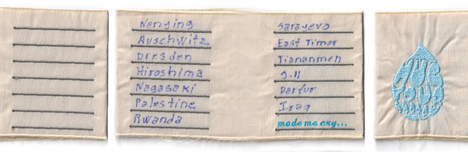 Nanjing
Auschwitz
Dresden
Hiroshima
Nagasaki
Palestine
Rwanda
Sarajevo
East Timor
Tiananmen
9.11
Darfur
Iraq
made me cry...